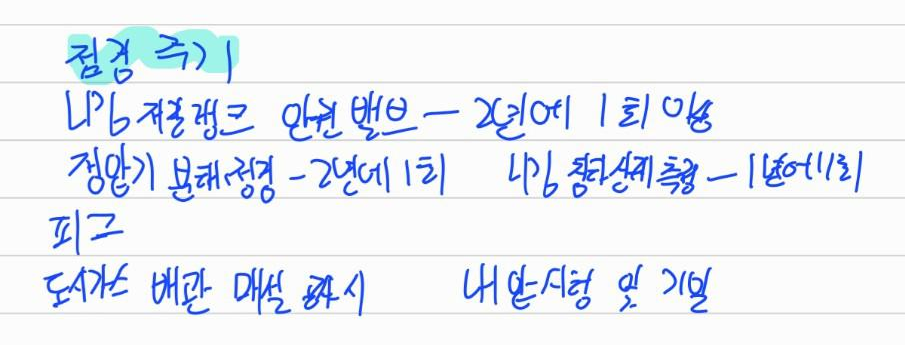 점검 주기
LPG 저장탱크 안전밸브 - 2년에 1회 이상
정압기 분해점검 - 2년에 1회 LPG 침하상태 측정 - 1년에 1회
피그
도시가스 배관 매설 표시 내압시험 및 기밀